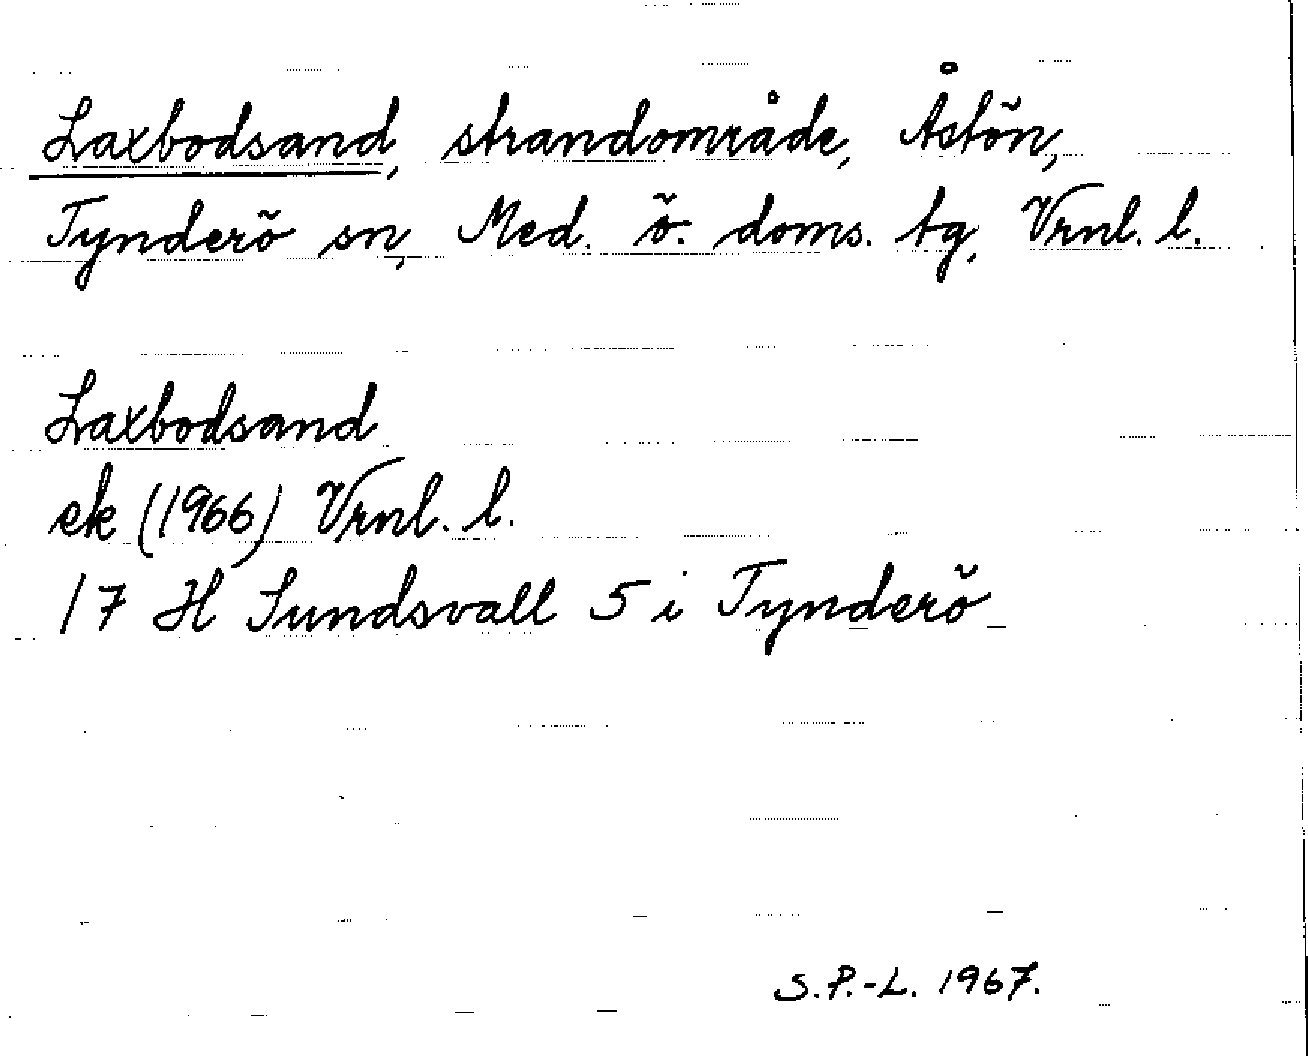 Laxbodsand, strandområde, Åstön,
Tynderö sn, Med. ö. doms. tg, Vrnl. l.
Laxbodsand
ek (1966) Vrnl. l.
17 H Sundsvall 5 i Tynderö
S.P.-L. 1967.